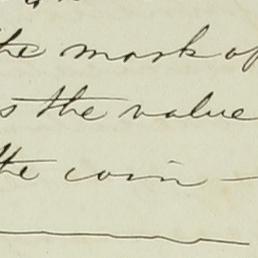 the mark of
s the value
the coin —